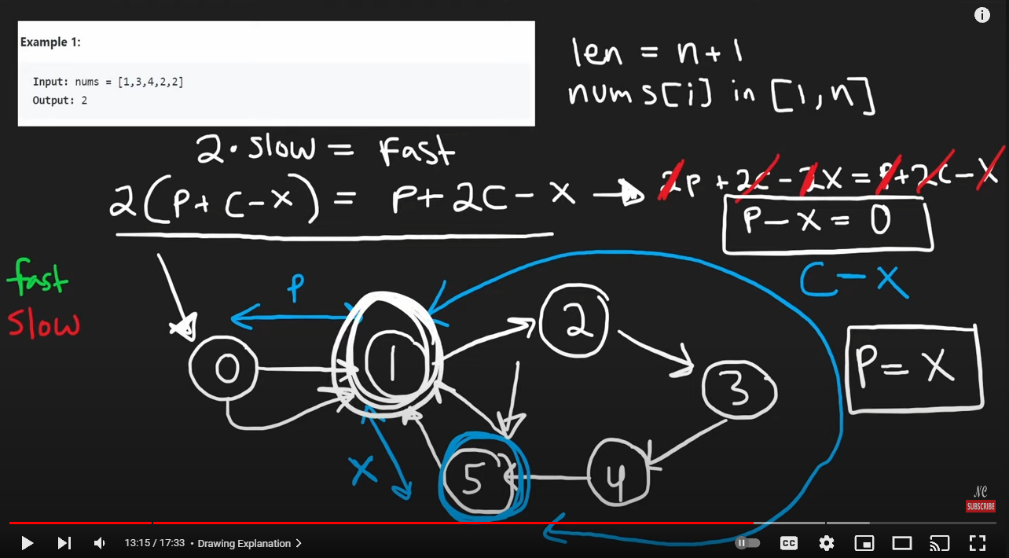 Example 1:
Input: nums = [1,3,4,2,2]
Output: 2
len = n+1
nums[i] in [1,n]
2 · slow = Fast
2(P+C-X) = P+2C-X
2P+2C-2X = P+2C-X
P-X = 0
C-X
fast
slow
P
0
1
2
3
4
5
X
P = X
NC
SUBSCRIBE
13:15 / 17:33 • Drawing Explanation >
CC